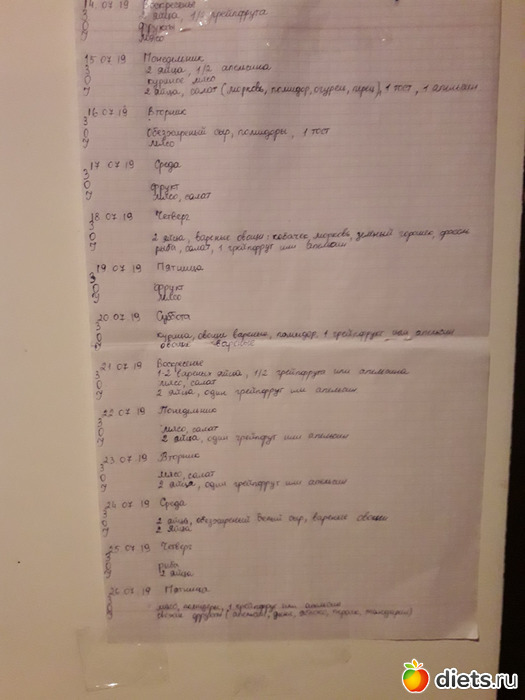 14.07.19 Воскресенье
З 2 яйца, 1/2 грейпфрута
О фрукты
У мясо
15.07.19 Понедельник
З 2 яйца, 1/2 апельсина
О куриное мясо
У 2 яйца, салат (морковь, помидор, огурец, перец), 1 тост, 1 апельсин
16.07.19 Вторник
З
О Обезжиреный сыр, помидоры, 1 тост
У мясо
17.07.19 Среда
З
О фрукт
У мясо, салат
18.07.19 Четверг
З
О 2 яйца, вареные овощи: кабачек, морковь, зеленый горошек, фасоль
У рыба, салат, 1 грейпфрут или апельсин
19.07.19 Пятница
З
О фрукт
У мясо
20.07.19 Суббота
З
О курица, овощи вареные, помидор, 1 грейпфрут или апельсин
У овощи вареные
21.07.19 Воскресенье
З 1-2 вареных яйца, 1/2 грейпфрута или апельсина
О мясо, салат
У 2 яйца, один грейпфрут или апельсин
22.07.19 Понедельник
З
О мясо, салат
У 2 яйца, один грейпфрут или апельсин
23.07.19 Вторник
З
О мясо, салат
У 2 яйца, один грейпфрут или апельсин
24.07.19 Среда
З
О 2 яйца, обезжиреный белый сыр, вареные овощи
У 2 яйца
25.07.19 Четверг
рыба
2 яйца
26.07.19 Пятница
мясо, помидоры, 1 грейпфрут или апельсин
diets.ru